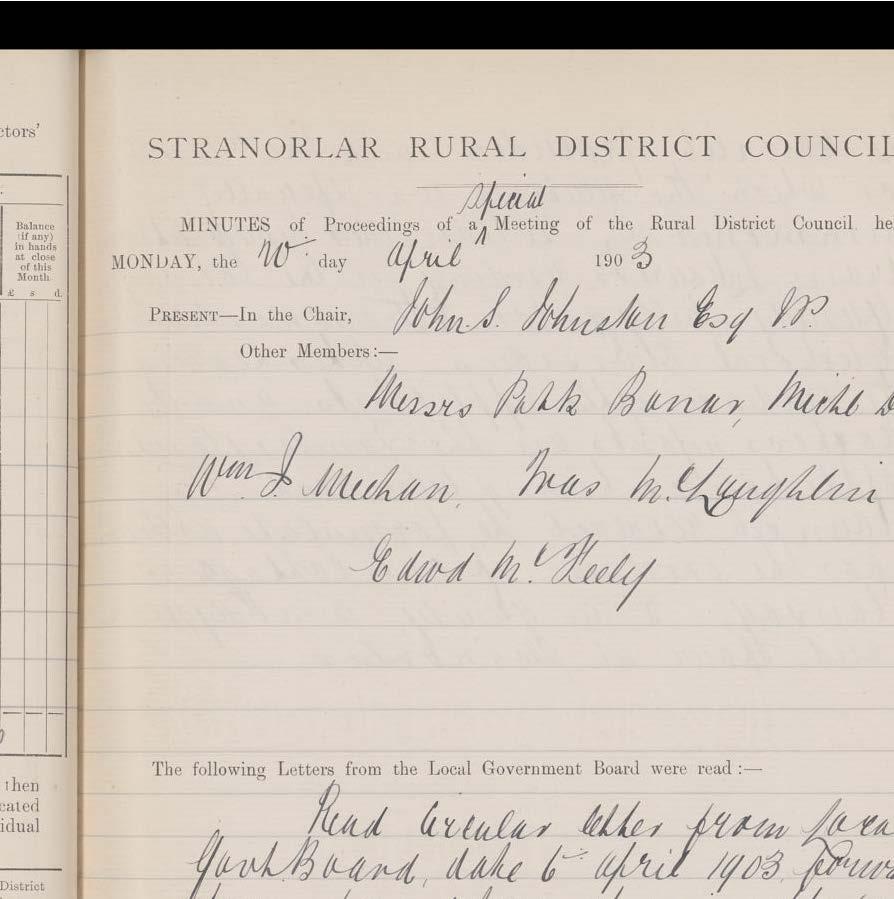 ctors'
STRANORLAR RURAL DISTRICT COUNCIL
special
MINUTES of Proceedings of a Meeting of the Rural District Council he
MONDAY, the day April 1903
PRESENT—In the Chair, John S. Johnston Esq
Other Members:—
Messrs Patk Bonar, Michl D
Wm J Meehan, Fras McLaughlin
Edwd McFeely
Balance
(if any)
in hands
at close
of this
Month
£ s d.
The following Letters from the Local Government Board were read :—
Read Circular letter from Loca
Govt. Board, date 6 April 1903, forwa
then
cated
idual
District